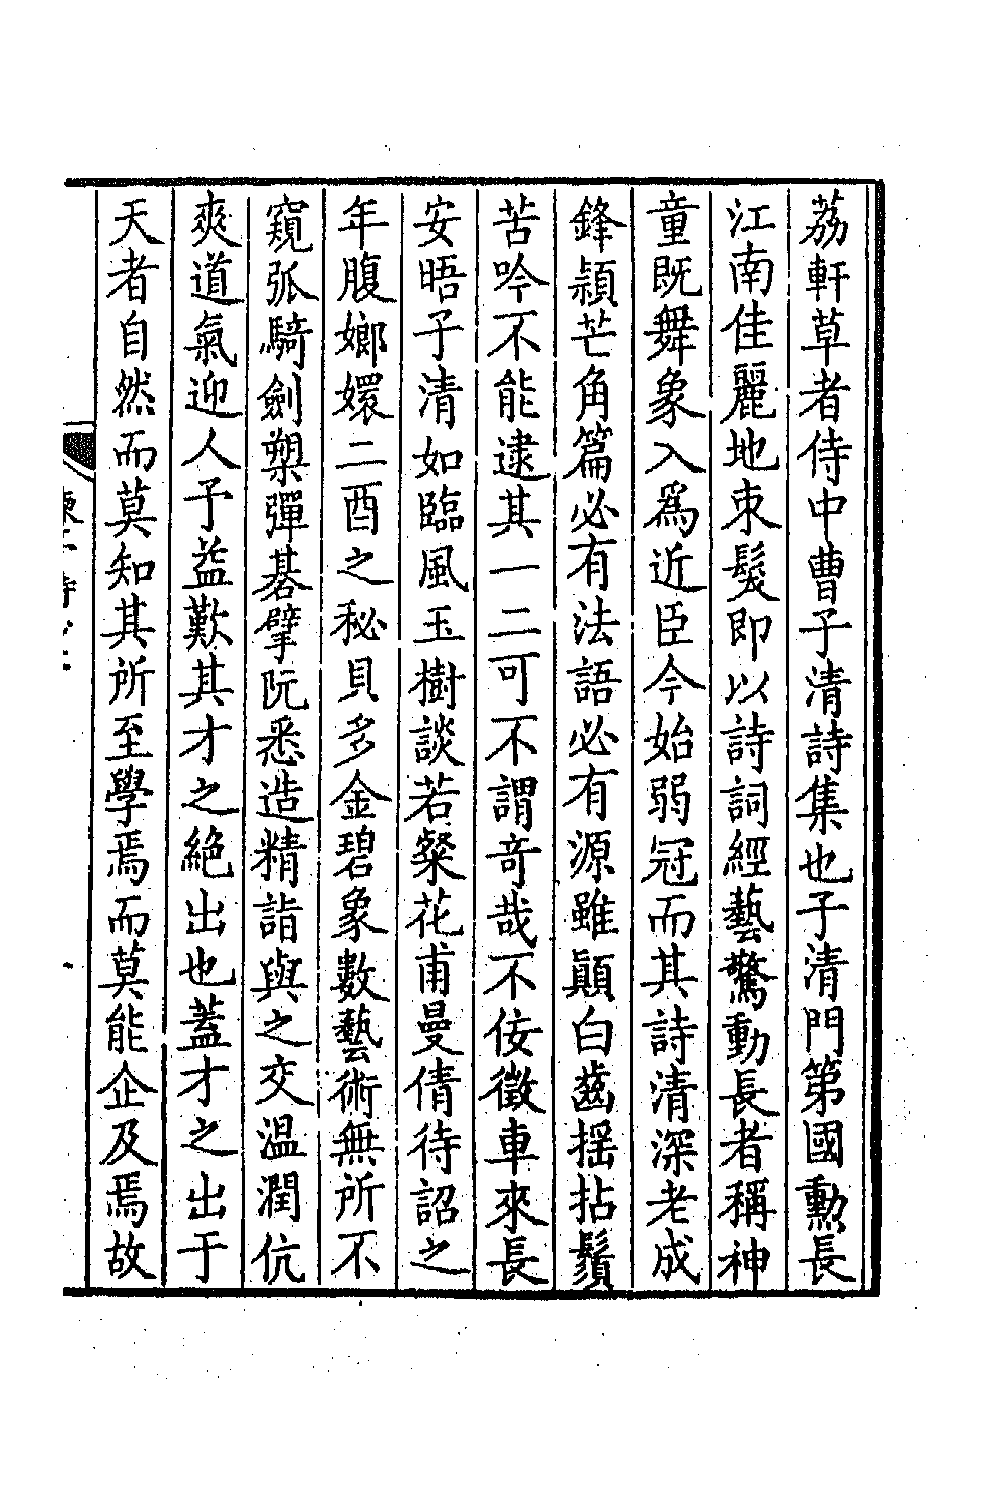 荔軒草者侍中曹子清詩集也子清門第國勳長
江南佳麗地束髮即以詩詞經藝驚動長者稱神
童既舞象入爲近臣今始弱冠而其詩清深老成
鋒頴芒角篇必有法語必有源雖顚白齒揺拈鬚
苦吟不能逮其一二可不謂奇哉不佞徵車來長
安晤子清如臨風玉樹談若粲花甫曼倩待詔之
年腹嫏嬛二酉之秘貝多金碧象數藝術無所不
窺弧騎劍槊彈碁擘阮悉造精詣與之交温潤伉
爽道氣迎人予益歎其才之絶出也蓋才之出于
天者自然而莫知其所至學焉而莫能企及焉故